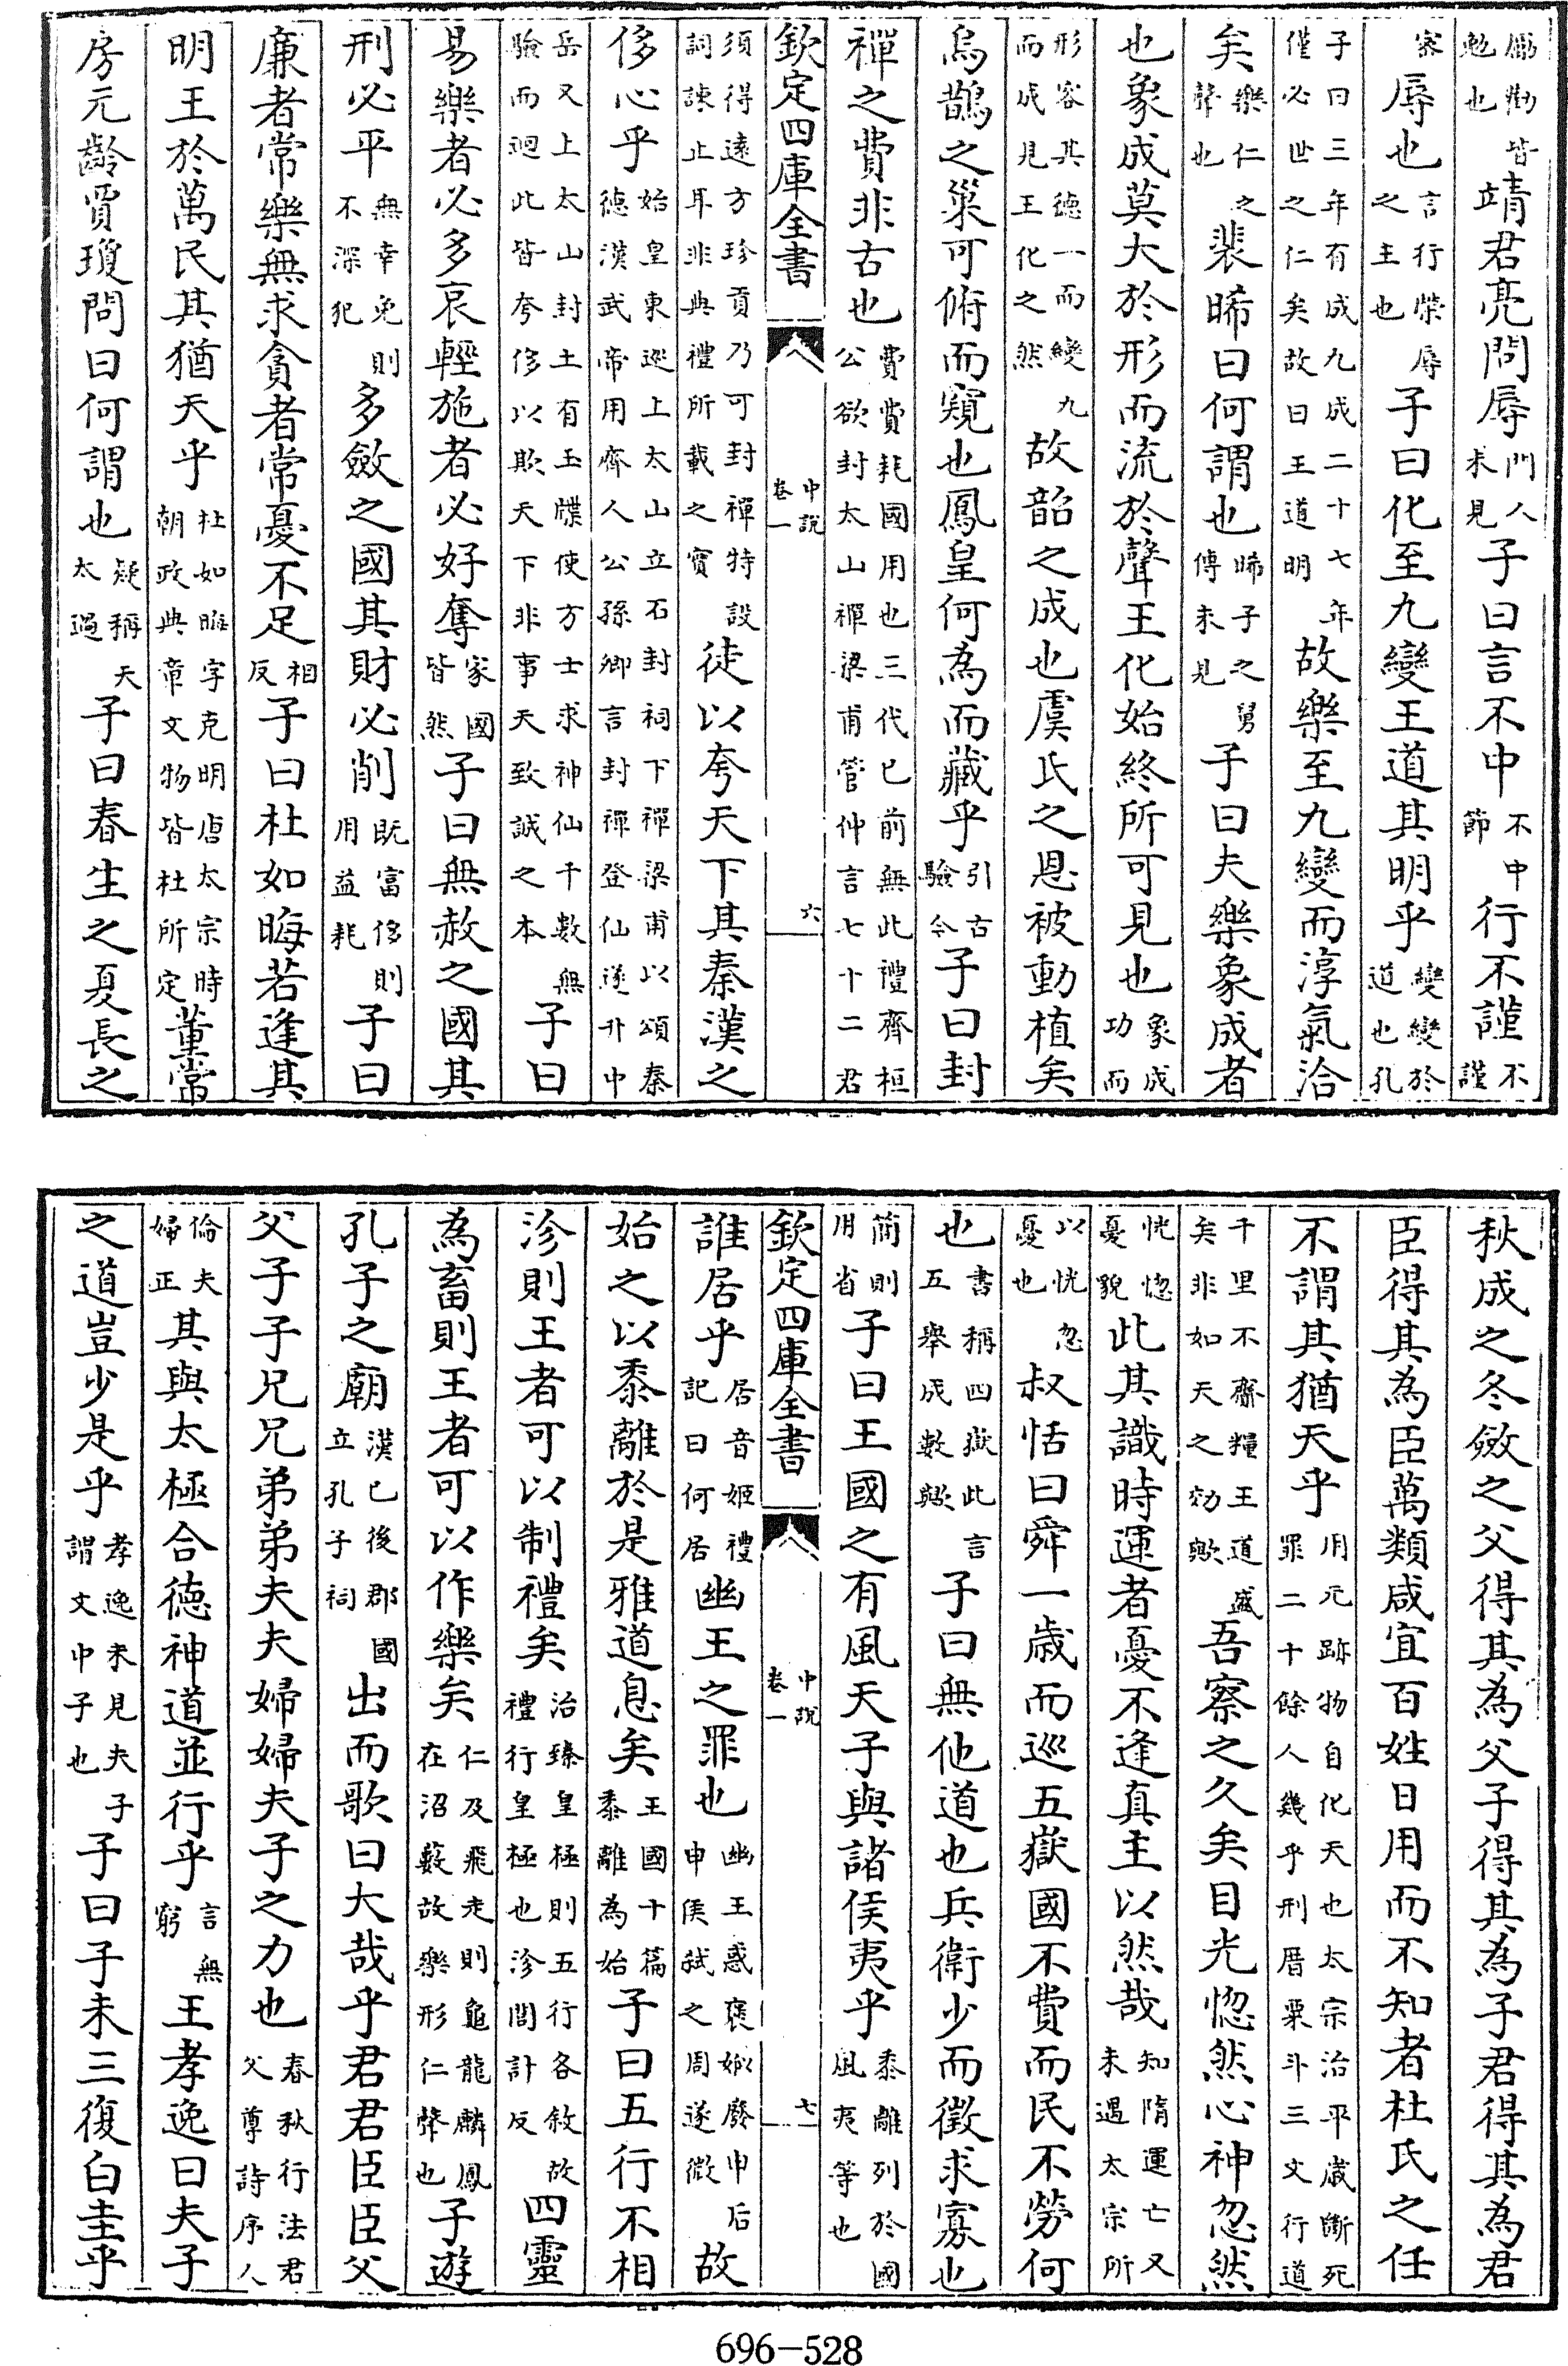 勵勸皆勉也靖君亮問辱門人未見子曰言不中不中節行不謹不謹
密辱也言行榮辱之主也子曰化至九變王道其明乎變變於道也孔
子曰三年有成九成二十七年僅必世之仁矣故曰王道明故樂至九變而淳氣洽
矣樂仁之聲也裴晞曰何謂也晞子之舅傳未見子曰夫樂象成者
也象成莫大於形而流於聲王化始終所可見也象成功而
形容其德一而變九而成見王化之然故韶之成也虞氏之恩被動植矣
烏鵲之巢可俯而窺也鳳皇何為而藏乎引古驗今子曰封
禪之費非古也費費耗國用也三代已前無此禮齊桓公欲封太山禪梁甫管仲言七十二君
欽定四庫全書 中說 卷一 六
須得遠方珍貢乃可封禪特設詞諫止耳非典禮所載之實徒以夸天下其秦漢之
侈心乎始皇東巡上太山立石封祠下禪梁甫以頌秦德漢武帝用齊人公孫卿言封禪登仙遂升中
岳又上太山封土有玉牒使方士求神仙千數無驗而迴此皆夸侈以欺天下非事天致誠之本子曰
易樂者必多哀輕施者必好奪家國皆然子曰無赦之國其
刑必平無幸免則不深犯多斂之國其財必削既富侈則用益耗子曰
廉者常樂無求貪者常憂不足相反子曰杜如晦若逢其
明王於萬民其猶天乎杜如晦字克明唐太宗時朝政典章文物皆杜所定董常
房元齡賈瓊問曰何謂也疑稱天太過子曰春生之夏長之
秋成之冬斂之父得其為父子得其為子君得其為君
臣得其為臣萬類咸宜百姓日用而不知者杜氏之任
不謂其猶天乎用元跡物自化天也太宗治平歲斷死罪二十餘人幾乎刑厝粟斗三文行道
千里不齎糧王道盛矣非如天之効歟吾察之久矣目光惚然心神忽然
恍惚憂貌此其識時運者憂不逢真主以然哉知隋運亡又未遇太宗所
以恍忽憂也叔恬曰舜一歲而巡五嶽國不費而民不勞何
也書稱四嶽此言五舉成數歟子曰無他道也兵衛少而徵求寡也
簡則用省子曰王國之有風天子與諸侯夷乎黍離列於國風夷等也
欽定四庫全書 中說 卷一 七
誰居乎居音姬禮記曰何居幽王之罪也幽王惑褒姒廢申后申侯弒之周遂微故
始之以黍離於是雅道息矣王國十篇黍離為始子曰五行不相
沴則王者可以制禮矣治臻皇極則五行各敘故禮行皇極也沴閭計反四靈
為畜則王者可以作樂矣仁及飛走則龜龍麟鳳在沼藪故樂形仁聲也子遊
孔子之廟漢已後郡國立孔子祠出而歌曰大哉乎君君臣臣父
父子子兄兄弟弟夫夫婦婦夫子之力也春秋行法君父尊詩序人
倫夫婦正其與太極合德神道並行乎言無窮王孝逸曰夫子
之道豈少是乎孝逸未見夫子謂文中子也子曰子未三復白圭乎
696-528